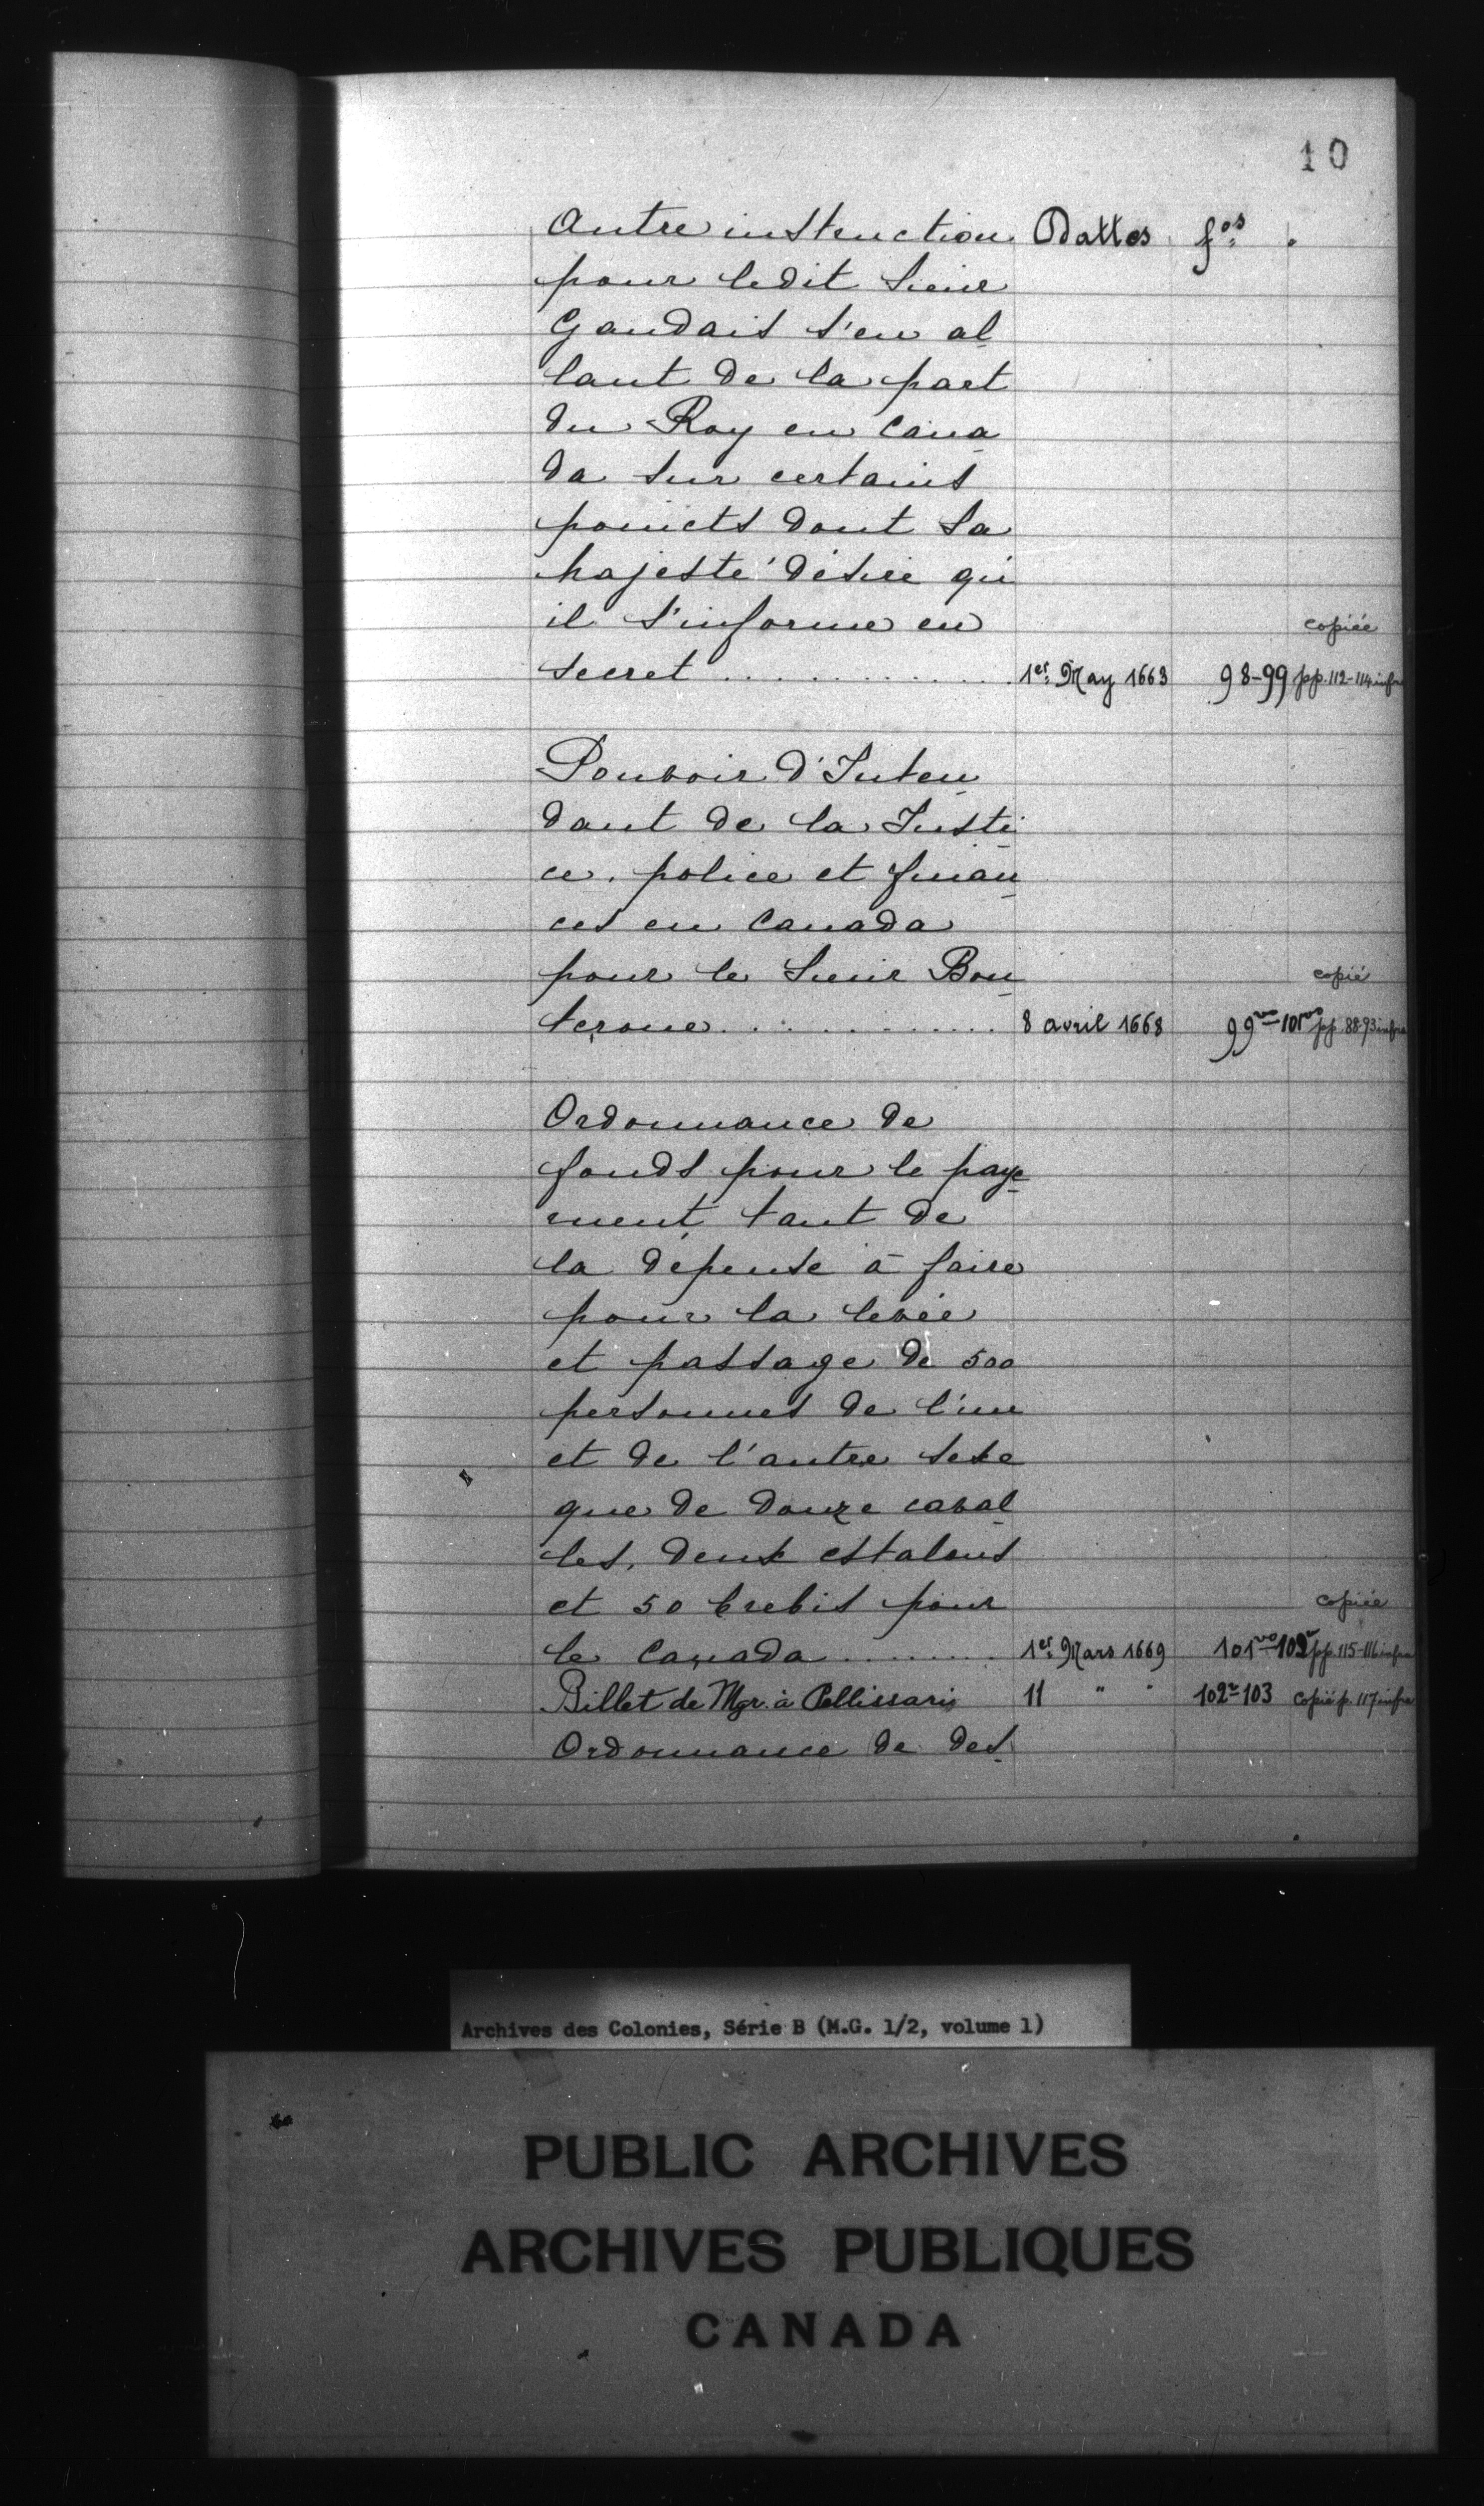 10
Autre instruction Dattes fos.
pour ledit Sieur
Gaudais s'en al
lant de la part
du Roy en Cana
da sur certains
poincts dont Sa
Majesté désire qu'
il s'informe en copiée
secret ............. 1er May 1663 98-99 pp. 112-114 infra
Pouvoir d'Inten
dant de la Justi
ce, police et finan
ces en Canada
pour le Sieur Bou copié
teroue ............. 8 avril 1668 99vo-101vo pp. 88-93 infra
Ordonnance de
fonds pour le paye
ment, tant de
la dépense à faire
pour la levée
et passage de 500
personnes de l'un
et de l'autre sexe
que de douze caval
les, deux estalons
et 50 brebis pour copiée
le Canada ......... 1er Mars 1669 101vo-102r pp. 115-116 infra
Billet de Mgr. à Pellissari 11 " " 102r-103 copié p. 117 infra
Ordonnance de des
Archives des Colonies, Série B (M.G. 1/2, volume 1)
PUBLIC ARCHIVES
ARCHIVES PUBLIQUES
CANADA